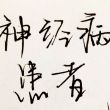 神经病
患者